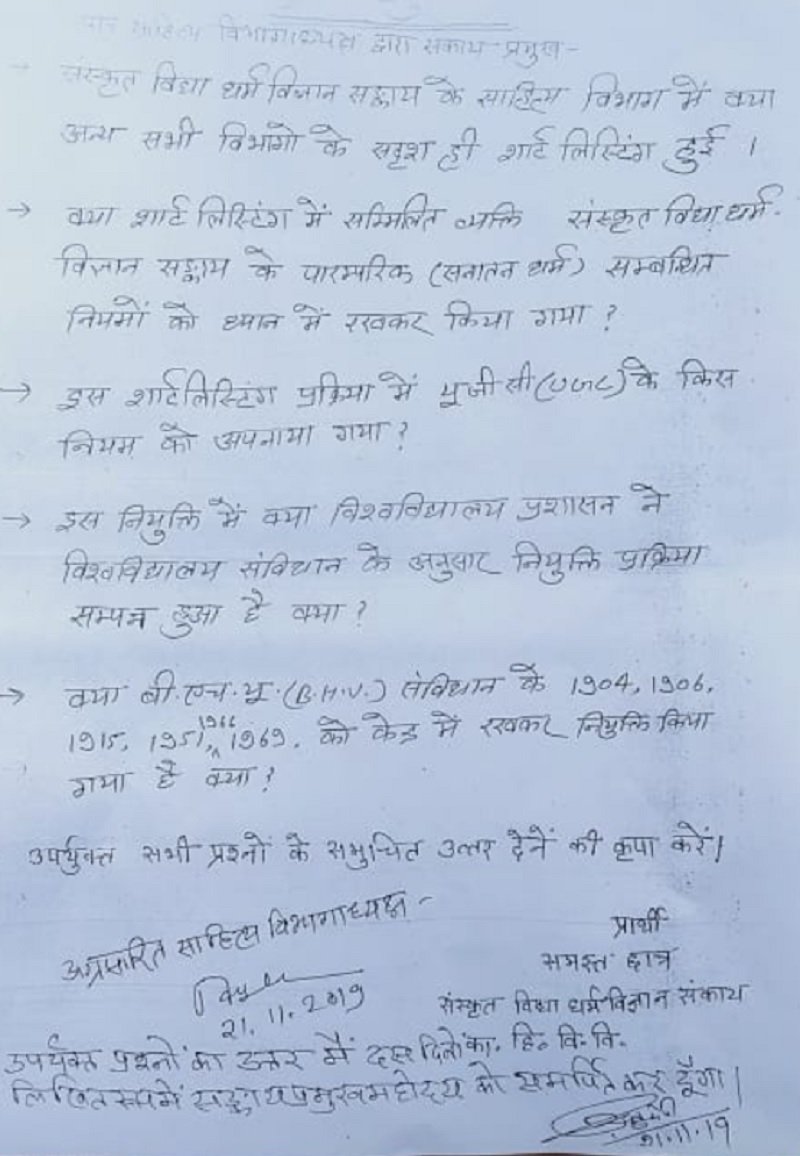 साहित्य विभागाध्यक्ष द्वारा संकाय प्रमुख -
संस्कृत विद्या धर्म विज्ञान सङ्काय के साहित्य विभाग में क्या
अन्य सभी विभागो के सदृश ही शार्ट लिस्टिंग हुई ।
→ क्या शार्ट लिस्टिंग में सम्मिलित व्यक्ति संस्कृत विद्या धर्म
विज्ञान सङ्काय के पारम्परिक (सनातन धर्म) सम्बन्धित
नियमों को ध्यान में रखकर किया गया ?
→ इस शार्टलिस्टिंग प्रक्रिया में यूजीसी (UGC) के किस
नियम को अपनाया गया ?
→ इस नियुक्ति में क्या विश्वविद्यालय प्रशासन ने
विश्वविद्यालय संविधान के अनुसार नियुक्ति प्रक्रिया
सम्पन्न हुआ है क्या ?
→ क्या बी.एच.यू. (B.H.U.) संविधान के 1904, 1906,
1915, 1951, 1966, 1969, को केन्द्र में रखकर नियुक्ति किया
गया है क्या ?
उपर्युक्त सभी प्रश्नों के समुचित उत्तर देनें की कृपा करें।
अग्रसारित साहित्य विभागाध्यक्ष -
21.11.2019
प्रार्थी
समस्त छात्र
संस्कृत विद्या धर्म विज्ञान संकाय
का. हि. वि. वि.
उपर्युक्त प्रश्नों का उत्तर मैं दस दिनों
लिखित रूप में सङ्कायप्रमुख महोदय को समर्पित कर दूँगा।
21.11.19